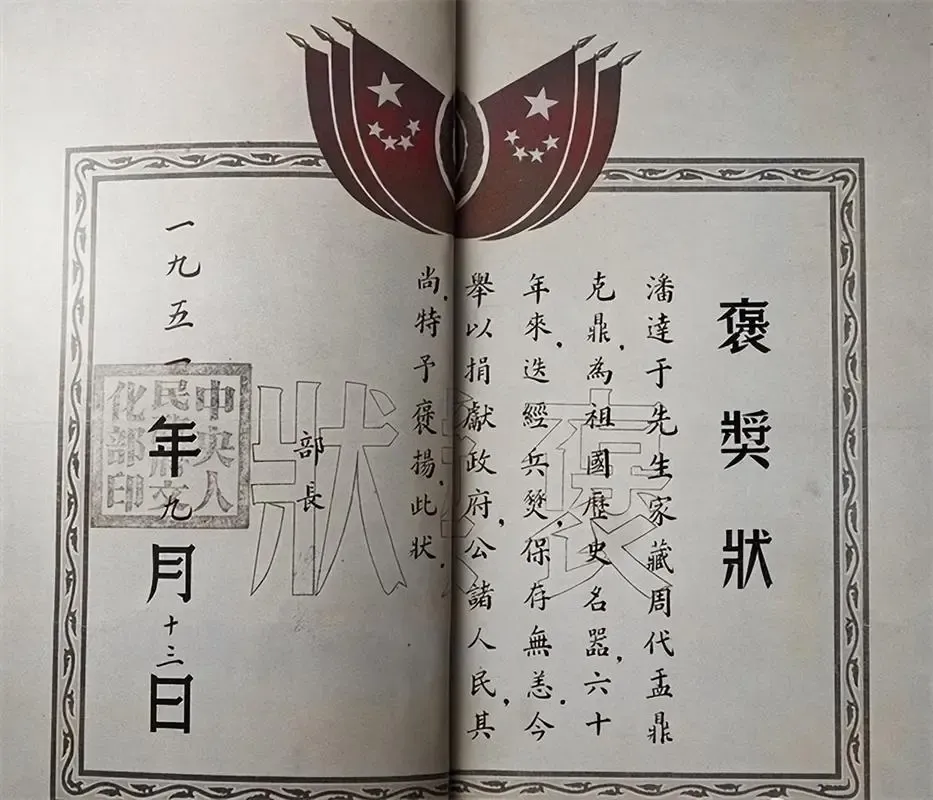 褒獎狀
潘達于先生家藏周代盂鼎
克鼎,為祖國歷史名器,六十
年來,迭經兵燹,保存無恙.今
舉以捐獻政府,公諸人民,其
尚,特予褒揚,此狀.
部長
一九五一年九月十三日
中央人
民政府文
化部印
褒獎狀